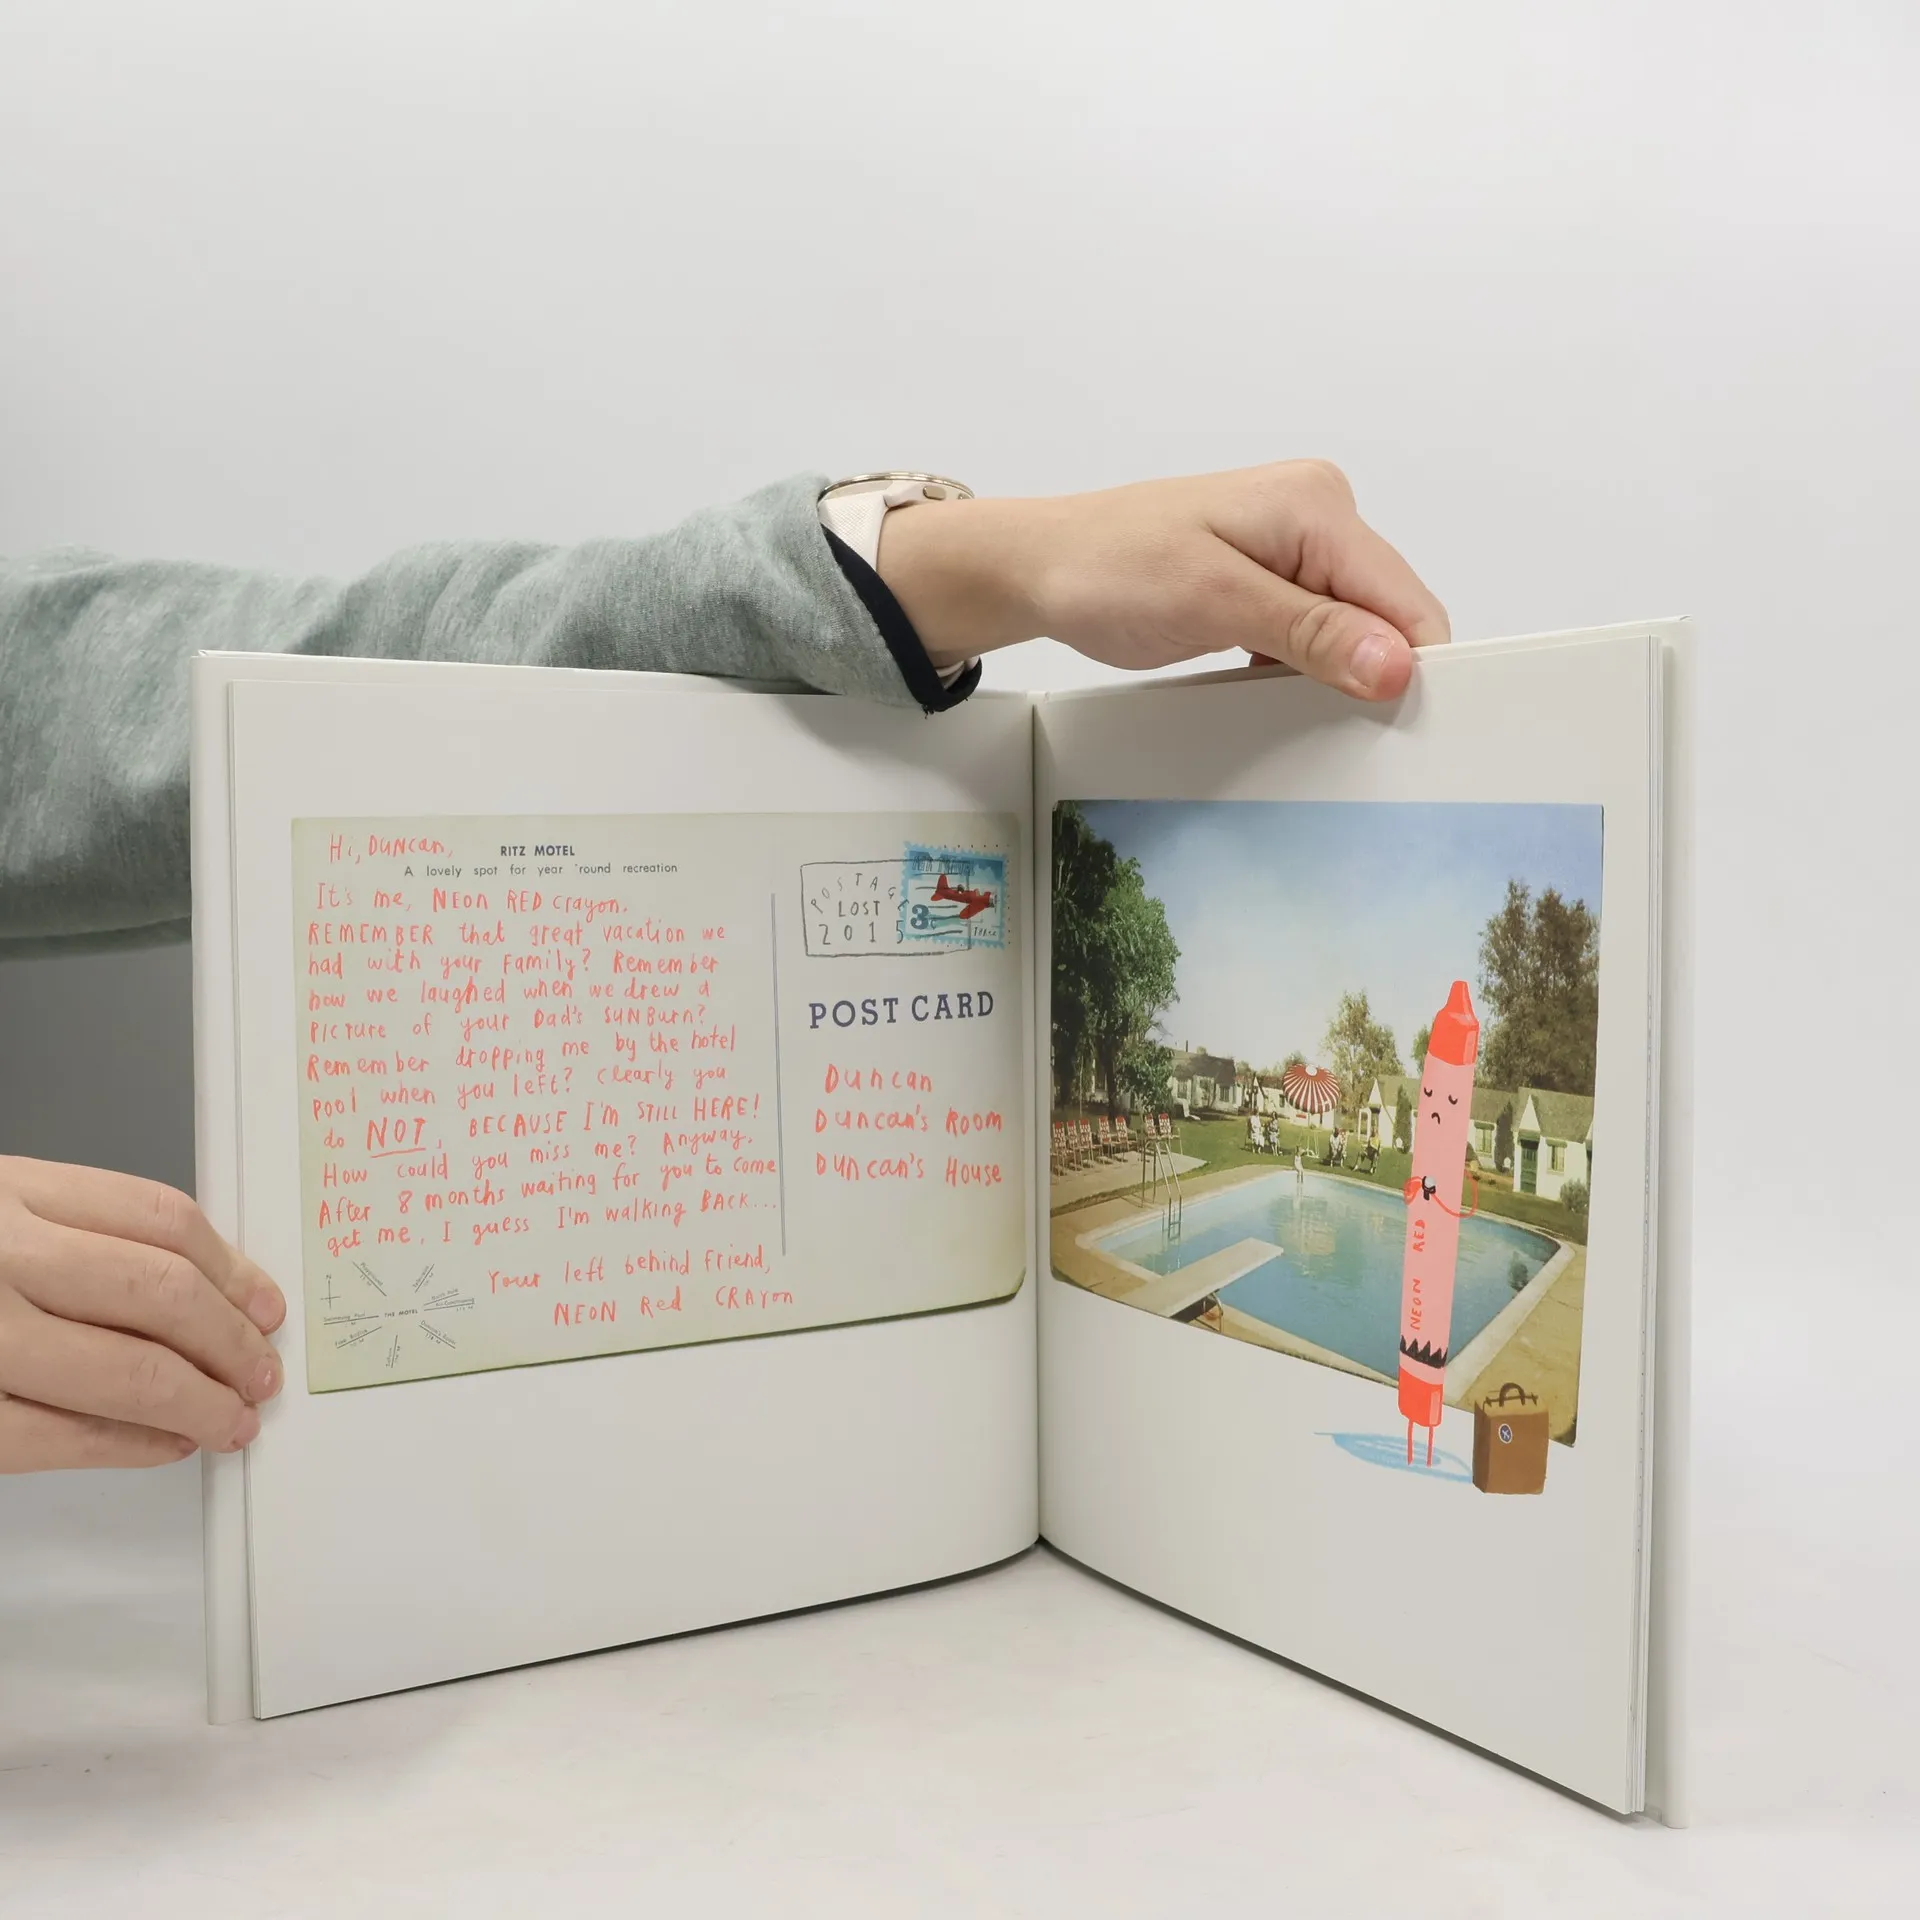 Hi, Duncan,
RITZ MOTEL
A lovely spot for year 'round recreation
It's me, NEON RED crayon.
REMEMBER that great vacation we
had with your Family? Remember
how we laughed when we drew a
picture of your Dad's SUNBurn?
Remember dropping me by the hotel
pool when you left? Clearly you
do NOT, BECAUSE I'M STILL HERE!
How could you miss me? Anyway.
After 8 months waiting for you to come
get me, I guess I'm walking BACK...
Your left behind Friend,
NEON Red CRAYON
THE MOTEL
POSTAGE
LOST
2015
3c
POST CARD
Duncan
Duncan's Room
Duncan's House
NEON RED